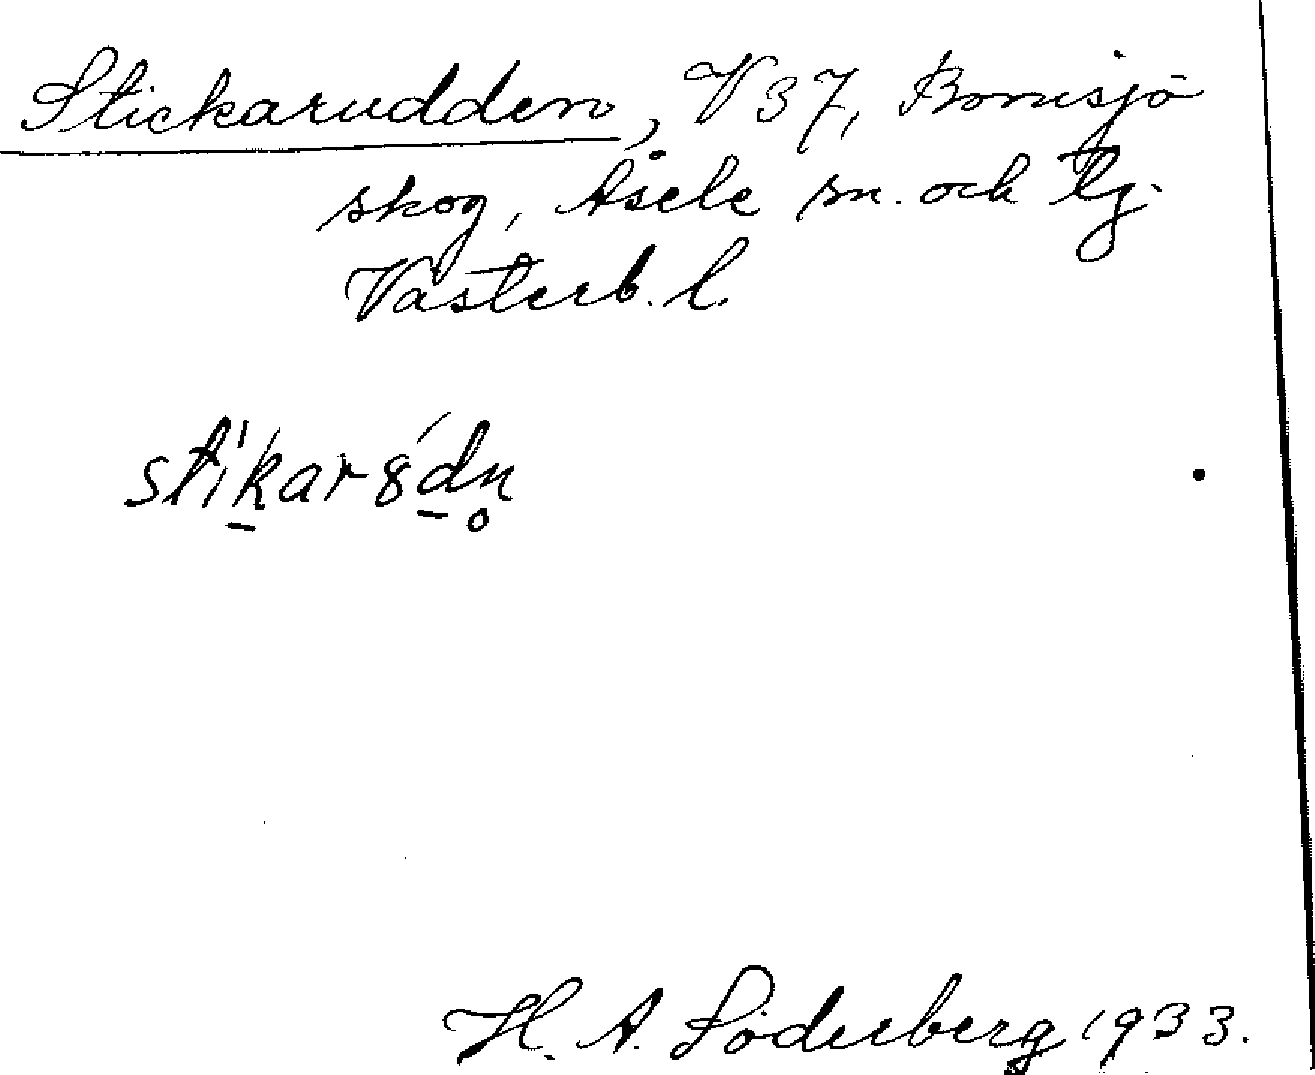 Stickarudden, V 37, Bomsjö
skog, Åsele sn. och lg.
Västerb. l.
stikar8dn
H. A. Söderberg 1933.